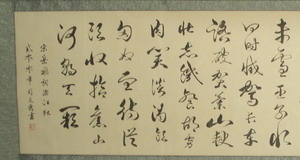 未雪臣子恨
何時滅駕長車
踏破賀蘭山缺
壯志飢餐胡虜
肉笑談渴飲
匈奴血待從
頭收拾舊山
河朝天闕
宋岳飛詞滿江紅
書